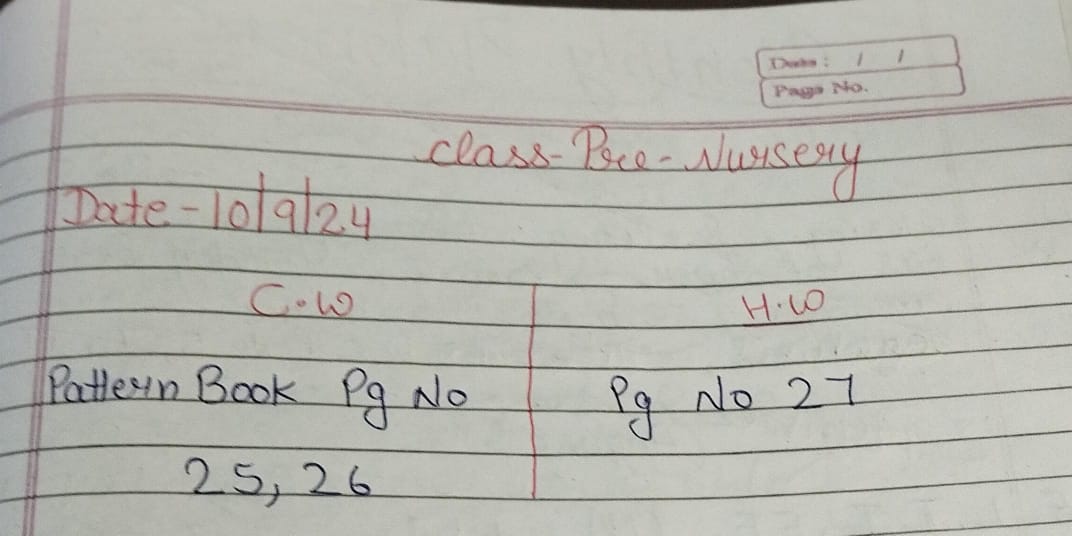 Date : / /
Page No.
Class- Pre-Nursery
Date - 10/9/24
C.W
H.W
Pattern Book Pg No
Pg No 27
25, 26